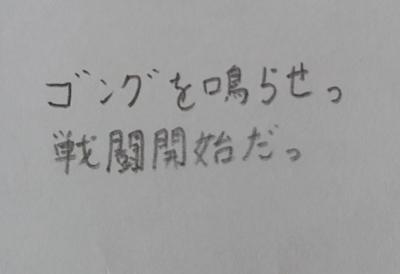 ゴングを鳴らせっ
戦闘開始だっ